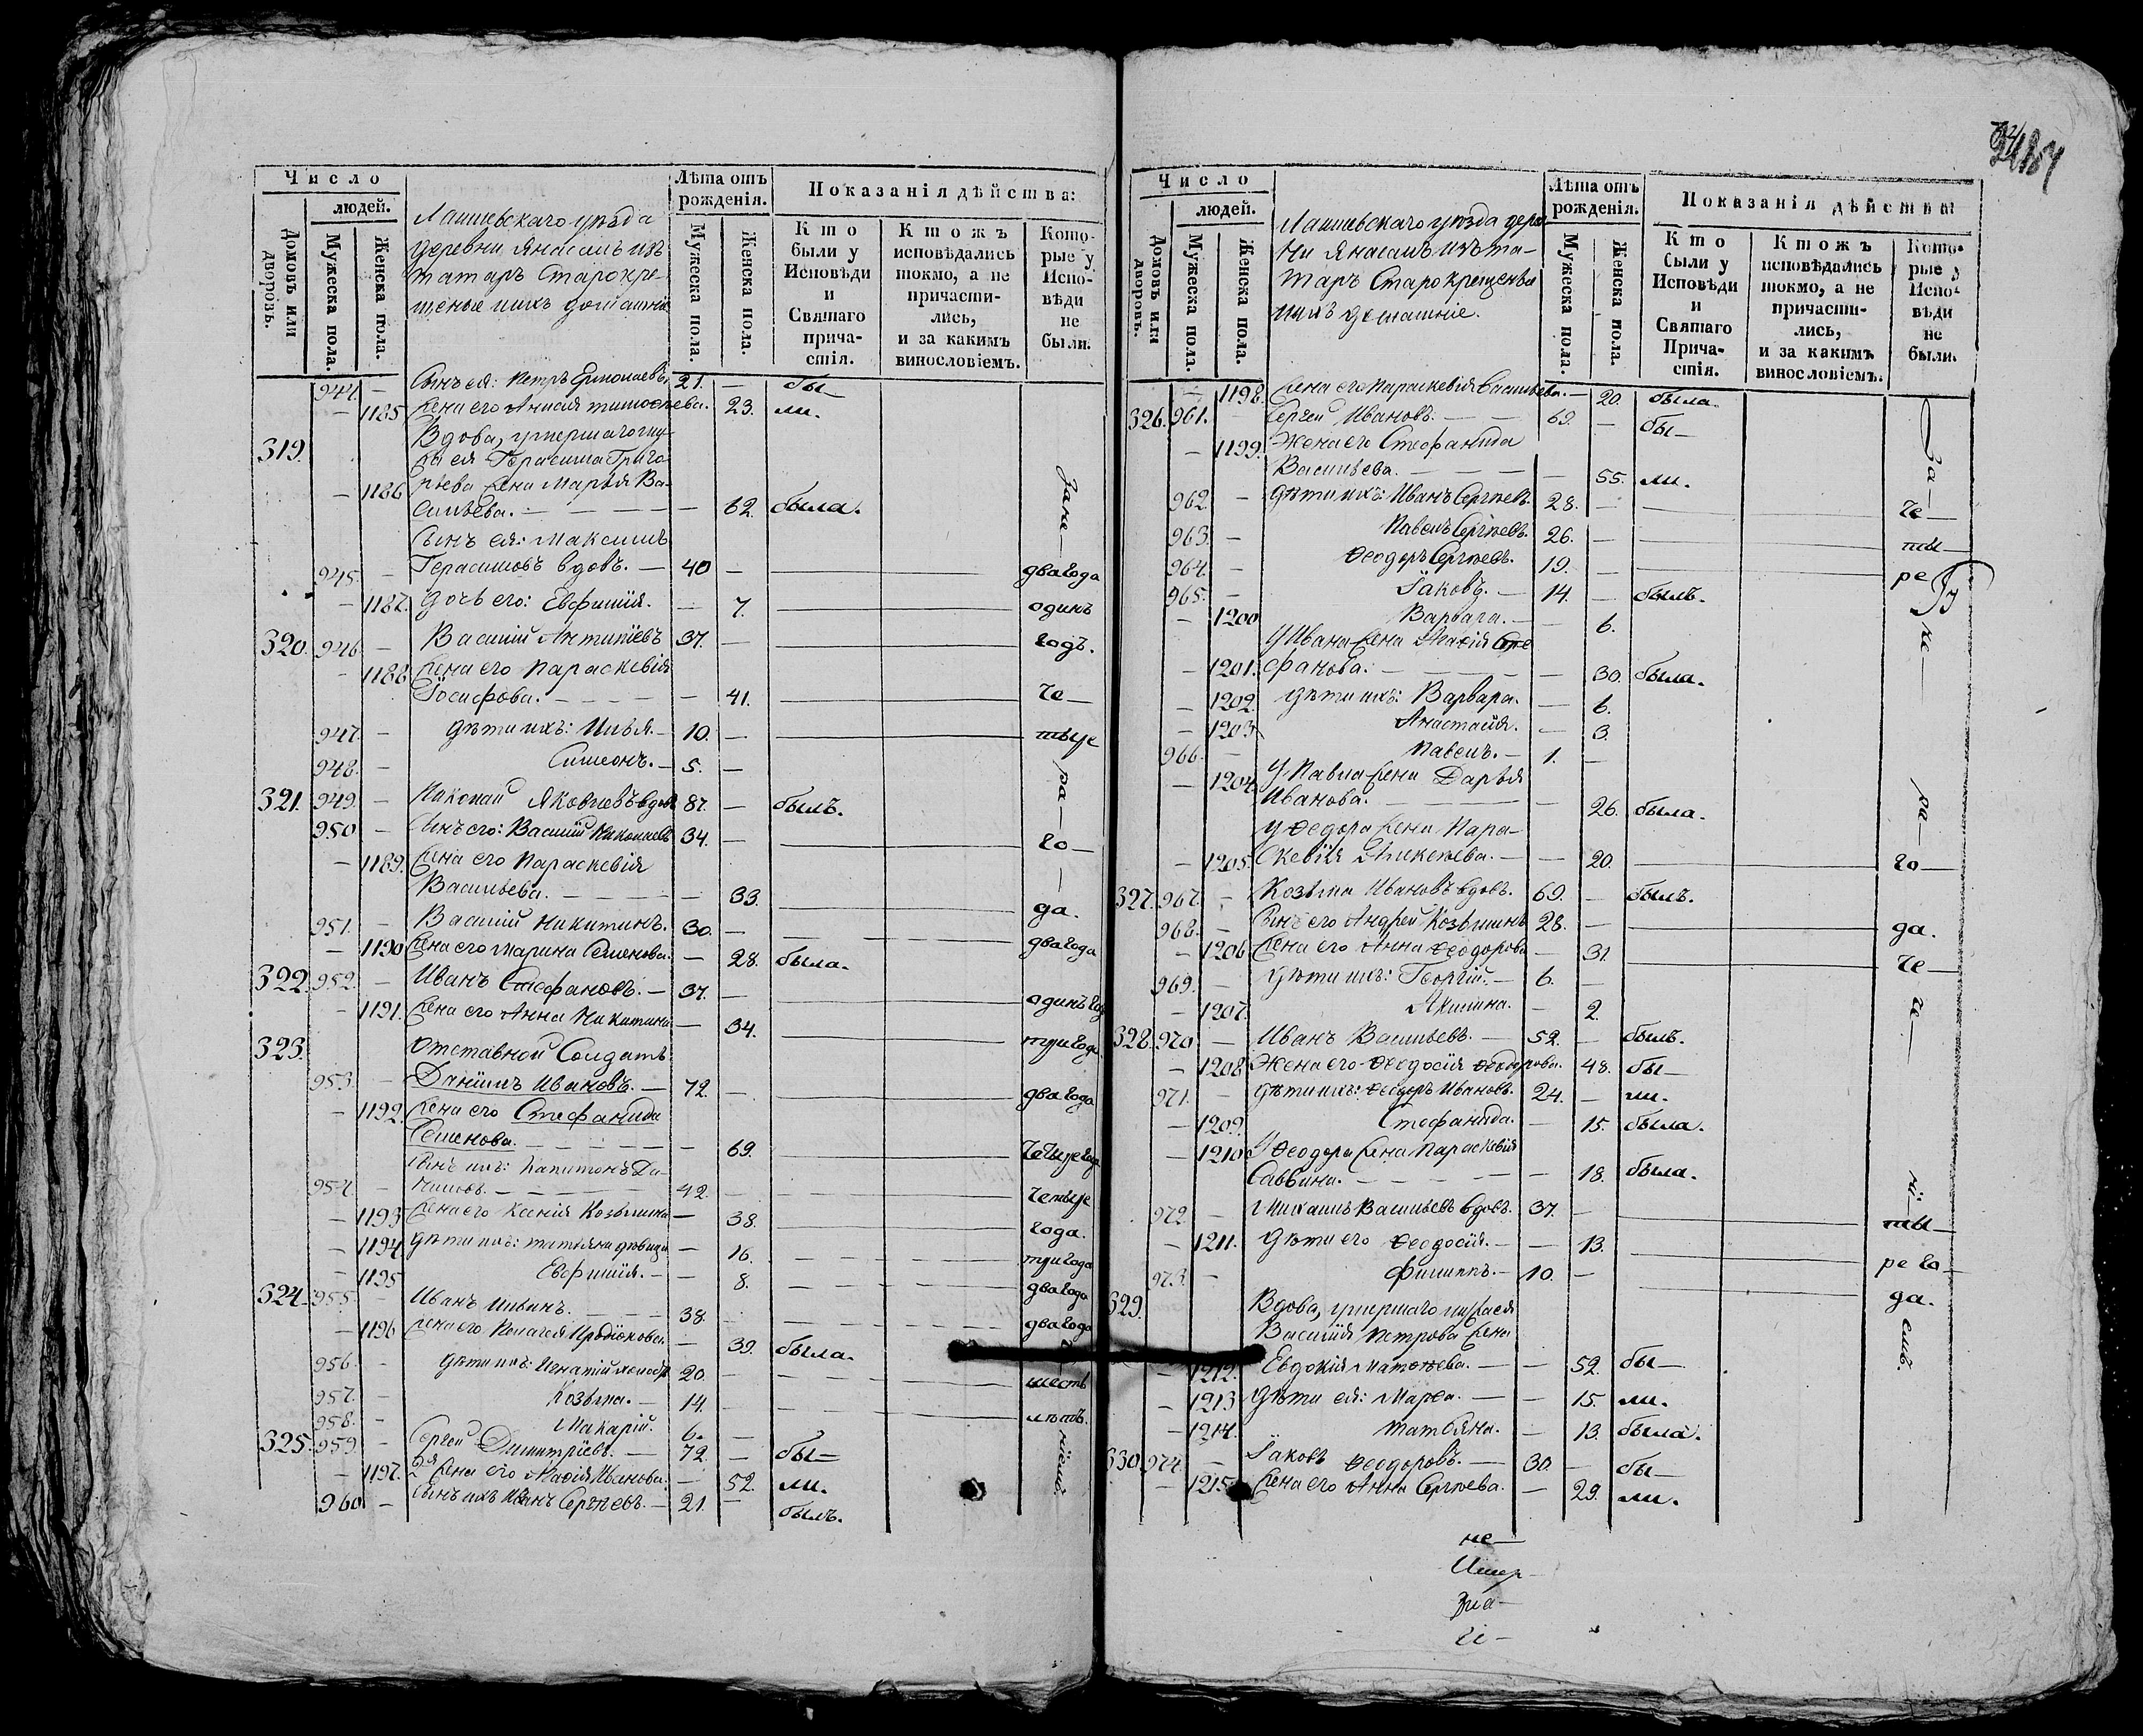 Число
людей.
Домовъ или дворовъ.
Мужеска пола.
Женска пола.
Лаишевскаго уѣзда
деревни Янасалъ изъ
татаръ Старокре-
щеные и ихъ домашніе
Лѣта отъ рожденія.
Мужеска пола.
Женска пола.
Показанія дѣйства:
Кто были у Исповѣди и Святаго причастія.
Ктожъ исповѣдались токмо, а не причастились, и за какимъ винословіемъ.
Которые у Исповѣди не были.
944 — Сынъ ея: Петръ Ермолаевъ, 21. — бы—
— 1185 Жена его Анисія Тимоѳеева. 23. ли.
319. Вдова, умершаго
Герасима Григо-
— 1186 рьева жена Марѳа Ва-
сильева. — — 62. была.
Сынъ ея: Максимъ
945. — Герасимовъ вдовъ. — 40 — два года
— 1187. Дочь его: Евфимія. — 7. одинъ
320. 946 — Василій Антипіевъ 37. — годъ.
— 1188 Жена его Параскевія
Іосифова. — — 41. че—
947. — Дѣти ихъ: Илья. — 10. — тыре
948. — Симеонъ. — 5. —
321. 949. — Николай Яковлевъ вдовъ 87. — былъ.
950 — Сынъ его: Василій Николаевъ 34. — го—
— 1189. Жена его Параскевія
Васильева. — — 33. да.
951. — Василій Никитинъ. 30. — два года
— 1190 Жена его Марина Семенова. — 28. была.
322. 952. — Иванъ Стефановъ. — 37. — одинъ год
— 1191. Жена его Анна Никитина — 34. три года
323. Отставной Солдатъ
953. — Даніилъ Ивановъ. — 72. — два года
— 1192. Жена его Стефанида
Семенова. — — 69. четыре года
Сынъ ихъ: Капитонъ Да-
954. — ниловъ. — 42. — четыре
— 1193 Жена его Ксенія Козьмина — 38. года.
— 1194 Дѣти ихъ: Татьяна дѣвица — 16. три года
— 1195 Евфимія. — — 8. два года
324. 955. Иванъ Ильинъ. — 38. два года
— 1196 Жена его Пелагея Иродіонова. — 39. была.
956. — Дѣти ихъ: Игнатій 20. — шесть
957. — Козьма. — 14 — лѣтъ.
958. — Макарій. 6. —
325. 959. — Сергей Димитріевъ. — 72. — бы—
— 1197. 2я Жена его Марія Иванова. — 52. ли.
960 — Сынъ ихъ Иванъ Сергѣевъ. — 21. — былъ.
Число
людей.
Домовъ или дворовъ.
Мужеска пола.
Женска пола.
Лаишевскаго уѣзда дерев
ни Янасалъ изъ та-
таръ Старокрещеные
и ихъ домашніе.
Лѣта отъ рожденія.
Мужеска пола.
Женска пола.
Показанія дѣйства
Кто были у Исповѣди и Святаго Причастія.
Ктожъ исповѣдались токмо, а не причастились, и за какимъ винословіемъ.
Которые у Исповѣди не были.
— 1198. Жена его Параскевія Васильева. — 20. была
326. 961. Сергей Ивановъ. — — 69. — бы—
— 1199. Жена его Стефанида
Васильева. — — — 55. ли.
962. — Дѣти ихъ: Иванъ Сергѣевъ. 28. — че—
963. — Павелъ Сергѣевъ. 26. — ты—
964. — Ѳеодоръ Сергѣевъ. 19. — ре
965. — Іаковъ. — 14. — былъ.
— 1200 Варвара. — 6.
У Ивана жена Агаѳія Сте
— 1201. фанова: — — 30. была.
— 1202. Дѣти ихъ: Варвара. — 6.
— 1203. Анастасія. — 3.
966. — Павелъ. — 1. —
— 1204. У Павла жена Дарья
Иванова. — — 26. была.
У Ѳеодора жена Пара-
— 1205. скевія Алексѣева. — — 20. го—
327. 967. — Козьма Ивановъ вдовъ. 69. — былъ.
968. — Сынъ его Андрей Козьминъ 28. — да.
— 1206 Жена его Анна Ѳеодорова — 31. че—
969. — Дѣти ихъ: Георгій. — 6. —
— 1207. Акилина. — 2.
328. 970 — Иванъ Васильевъ. — 52. — былъ.
— 1208 Жена его Ѳеодосія Ѳеодорова. 48. бы—
971. — Дѣти ихъ: Ѳеодоръ Ивановъ. 24. — ли.
— 1209. Стефанида. — 15. была.
— 1210 У Ѳеодора жена Параскевія
Саввина. — — 18. была.
972 — Михаилъ Васильевъ вдовъ. 37. — ты—
— 1211. Дѣти его Ѳеодосія. — — 13. ре го—
973. — Филиппъ. — 10. — да.
329. Вдова, умершаго
Василія Петрова жена
— 1212. Евдокія Матвѣева. — — 52. бы—
— 1213 Дѣти ея: Марѳа. — — 15. ли.
— 1214. Татьяна. — 13. была.
330 974. — Іаковъ Ѳеодоровъ. — 30. — бы—
— 1215 Жена его Анна Сергѣева. — 29. ли.